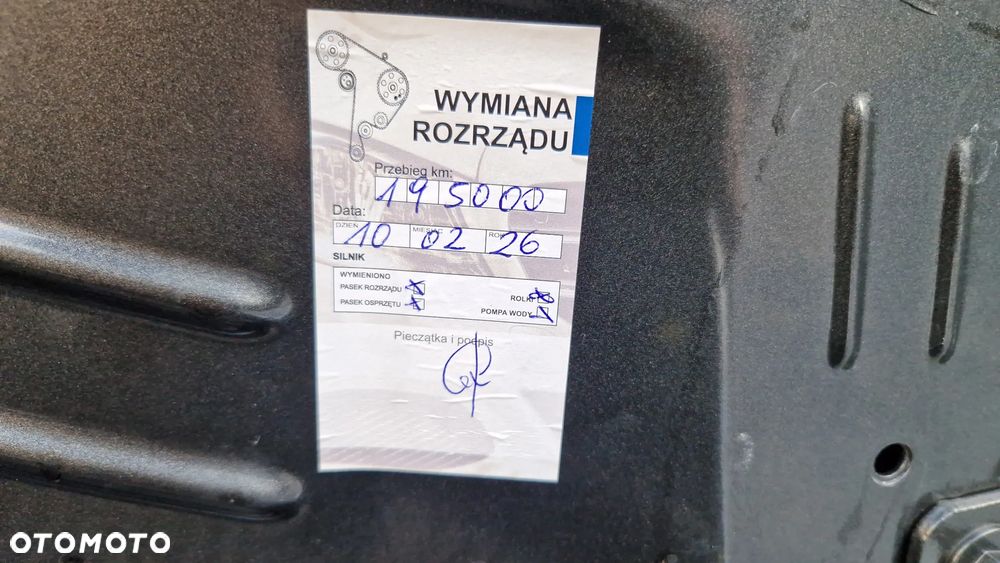 WYMIANA
ROZRZĄDU
Przebieg km:
195000
Data:
DZIEŃ 10 MIESIĄC 02 ROK 26
SILNIK
WYMIENIONO
PASEK ROZRZĄDU ROLKI
PASEK OSPRZĘTU POMPA WODY
Pieczątka i podpis
OTOMOTO